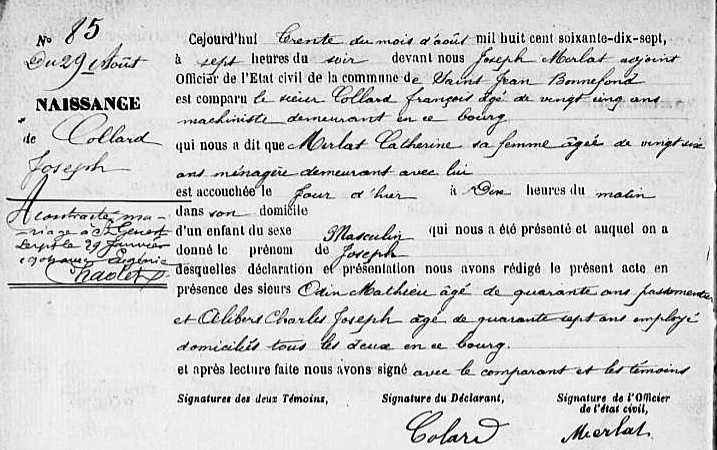 N° 85
Du 29 Août
NAISSANCE
de Collard
Joseph
A contracté ma-
riage à St Genest
Lerpt le 29 Janvier
avec Eugénie
Chaolet
Cejourd'hui trente du mois d'août mil huit cent soixante-dix-sept,
à sept heures du soir devant nous Joseph Merlat adjoint
Officier de l'Etat civil de la commune de Saint Jean Bonnefond
est comparu le sieur Collard françois âgé de vingt cinq ans
machiniste demeurant en ce bourg
qui nous a dit que Merlat Catherine sa femme âgée de vingt six
ans ménagère demeurant avec lui
est accouchée le jour d'hier à Dix heures du matin
dans son domicile
d'un enfant du sexe Masculin qui nous a été présenté et auquel on a
donné le prénom de Joseph
desquelles déclaration et présentation nous avons rédigé le présent acte en
présence des sieurs Odin Mathieu âgé de quarante ans passementier
et Alibers Charles Joseph âgé de quarante sept ans employé
domiciliés tous les deux en ce bourg.
et après lecture faite nous avons signé avec le comparant et les témoins
Signatures des deux Témoins, Signature du Déclarant, Signature de l'Officier
de l'état civil,
Colard Merlat